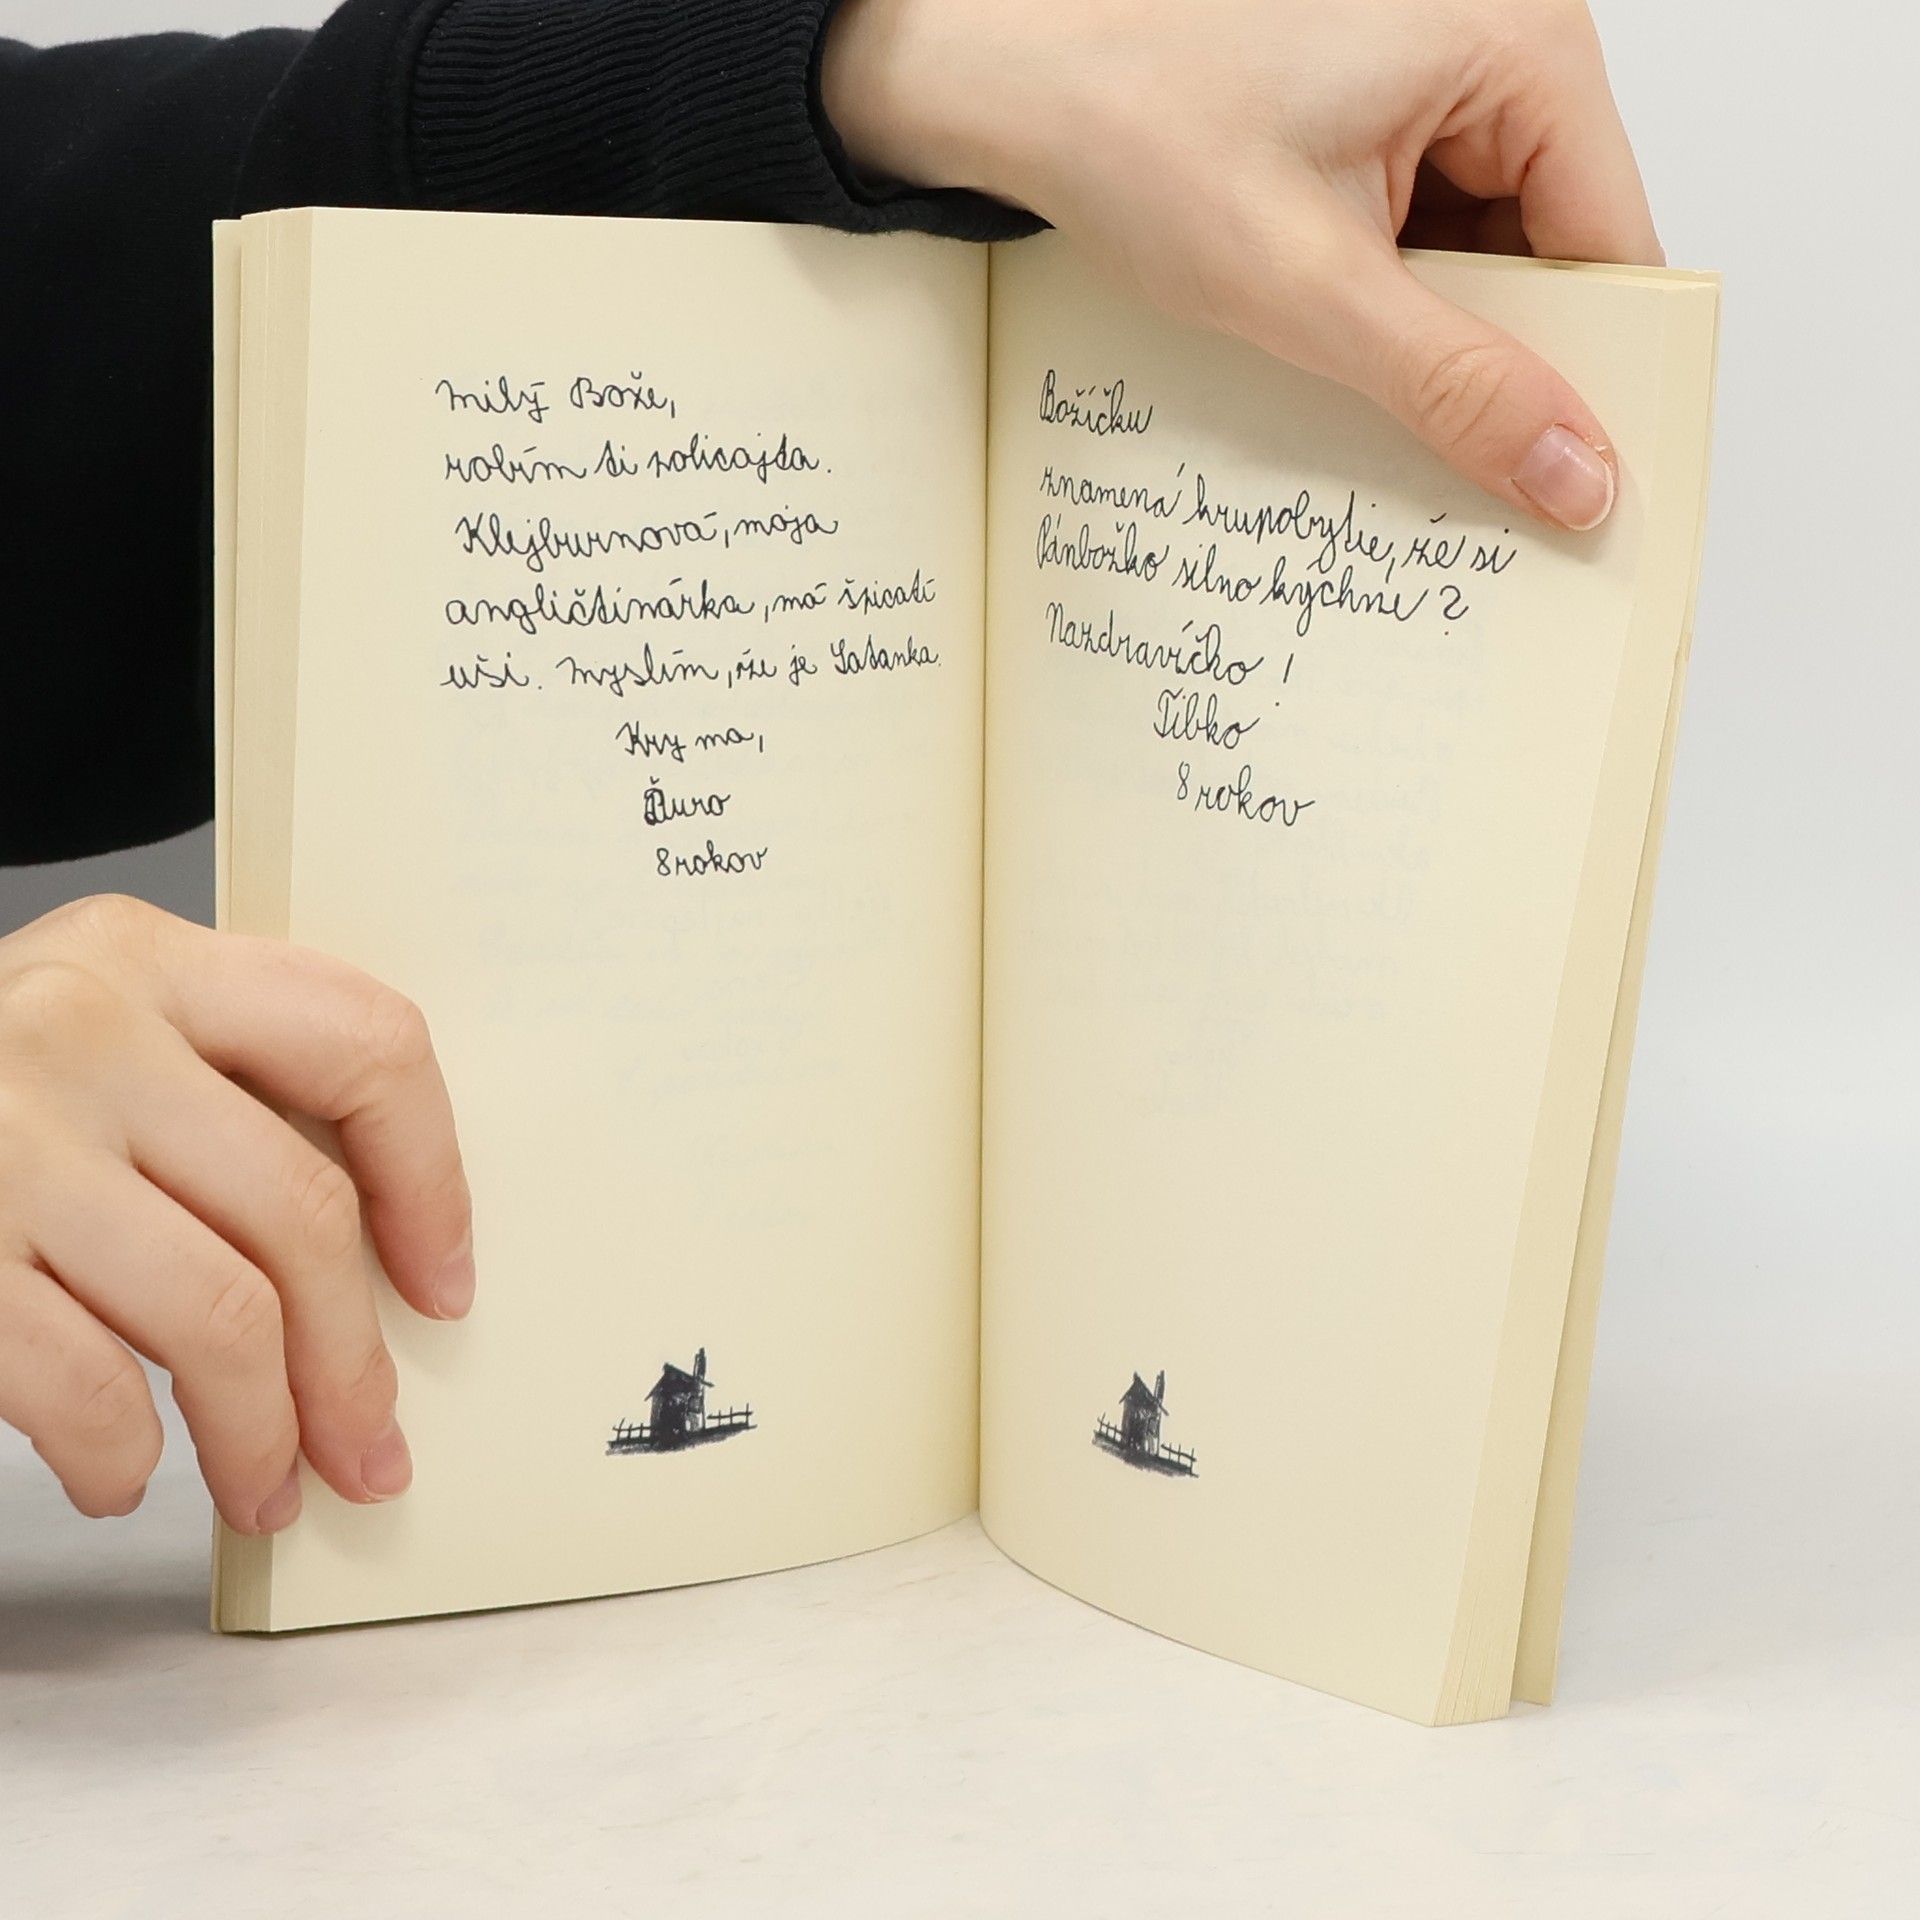 Milý Bože,
robím ti policajta.
Klejburnová, moja
angličtinárka, má špicatí
uši. Myslím, že je Satanka.
Kry ma,
Ďuro
8 rokov
Božíčku
znamená krupobytie, že si
Pánbožko silno kýchne?
Nazdravíčko!
Tibko
8 rokov